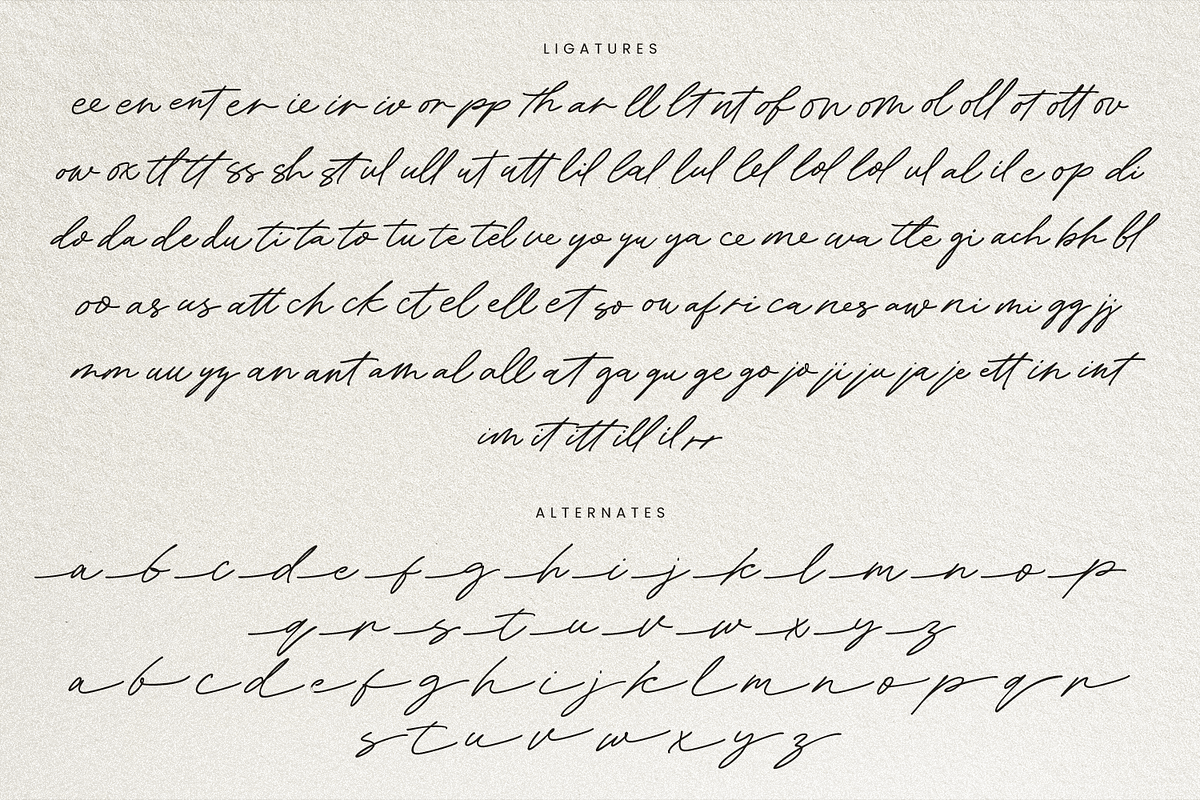 LIGATURES
ee en ent er ie ir iv or pp Th ar ll lt nt of on om ol oll ot ott ov
ow ox tl tt ss sh st ul ull ut utt lil lal lul lel lol lol ul al il e op di
do da de du ti ta to tu te tel ve yo yu ya ce me wa tle gi ach bh bl
oo as us att ch ck ct el ell et so ou af ri ca nes aw ni mi gg jj
mm uu yy an ant am al all at ga gu ge go jo ji ju ja je ett in int
im it itt ill il rr
ALTERNATES
a b c d e f g h i j k l m n o p
q r s t u v w x y z
a b c d e f g h i j k l m n o p q r
s t u v w x y z